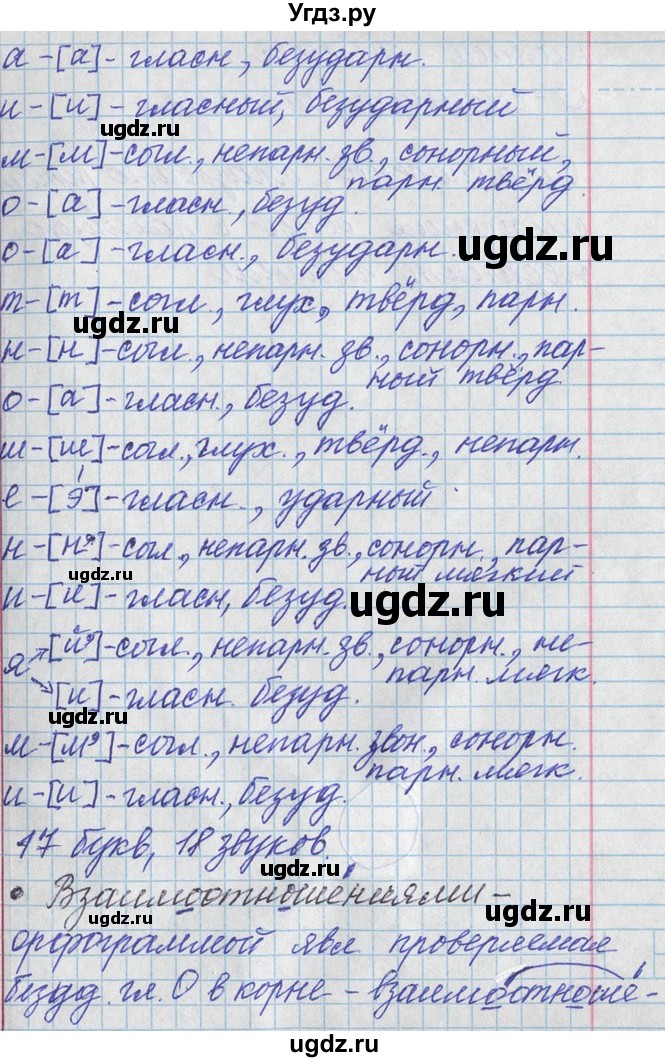 Угдз.ру
а-[а]-гласн., безударн.
и-[и]-гласный, безударный
ugdz.ru
м-[м]-согл., непарн. зв., сонорный,
парн. твёрд.
ugdz.ru
о-[а]-гласн., безуд.
о-[а]-гласн., безударн.
ugdz.ru
т-[т]-согл., глух., твёрд., парн.
ugdz.ru
н-[н]-согл., непарн. зв., сонорн., пар-
ный твёрд.
ugdz.ru
о-[а]-гласн., безуд.
ш-[ш]-согл., глух., твёрд., непарн.
ugdz.ru
е-[э́]-гласн., ударный
н-[н']-согл., непарн. зв., сонорн., пар-
ный мягкий
ugdz.ru
и-[и]-гласн., безуд.
ugdz.ru
я [й']-согл., непарн. зв., сонорн., не-
парн. мягк.
ugdz.ru
[и]-гласн. безуд.
ugdz.ru
м-[м']-согл., непарн. звон., сонорн.
парн. мягк.
ugdz.ru
и-[и]-гласн., безуд.
17 букв, 18 звуков.
ugdz.ru
• Взаимоотноше́ниями-
ugdz.ru
орфограммой явл проверяемая
безуд. гл. О в корне - взаимоотноше́-
ugdz.ru